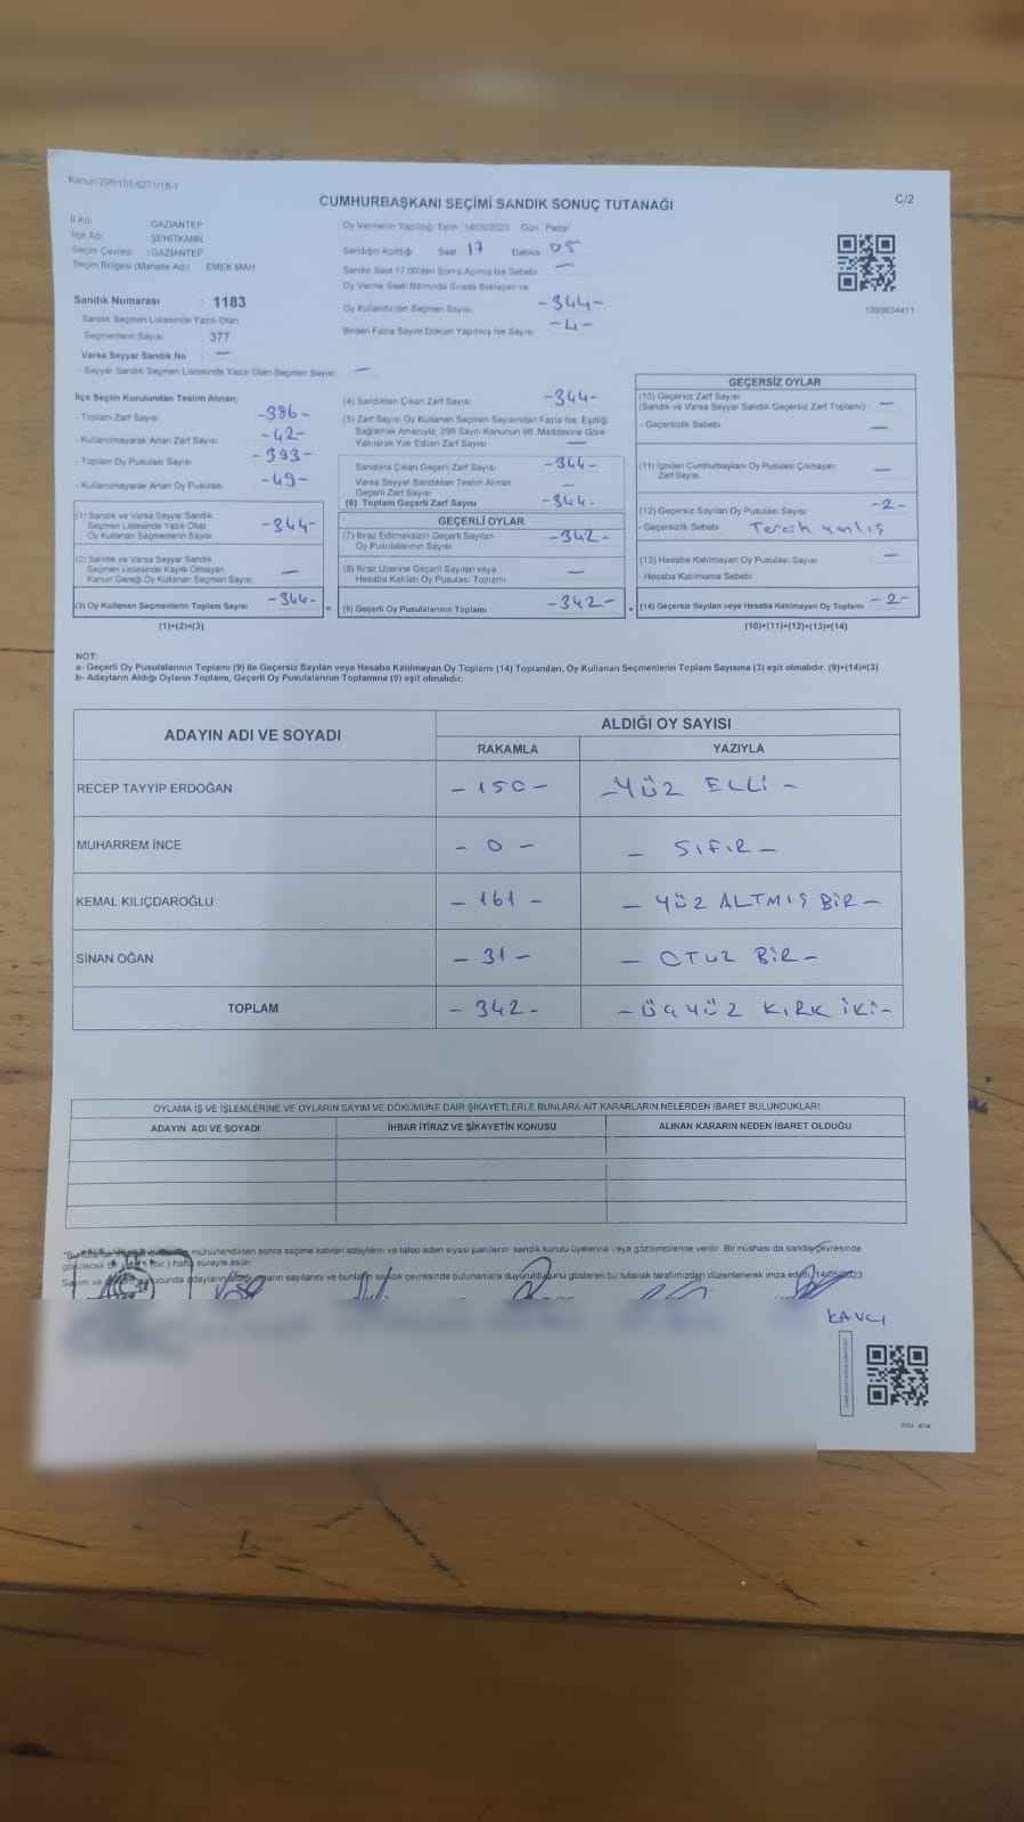 CUMHURBAŞKANI SEÇİMİ SANDIK SONUÇ TUTANAĞI
C/2
İl Adı : GAZİANTEP
İlçe Adı : ŞEHİTKAMİL
Seçim Çevresi : GAZİANTEP
Seçim Bölgesi (Mahalle Adı) EMEK MAH
Oy Vermenin Yapıldığı Tarih 14/05/2023 Gün Pazar
Sandığın Açıldığı Saat 17 Dakika 05
Sandık Numarası : 1183
Sandık Seçmen Listesinde Yazılı Olan
Seçmenlerin Sayısı 377
Varsa Seyyar Sandık No —
- Seyyar Sandık Seçmen Listesinde Yazılı Olan Seçmen Sayısı —
Oy Kullandırılan Seçmen Sayısı -344-
Birden Fazla Sayım Döküm Yapılmış İse Sayısı -4-
İlçe Seçim Kurulundan Teslim Alınan;
- Toplam Zarf Sayısı -386-
- Kullanılmayarak Artan Zarf Sayısı -42-
- Toplam Oy Pusulası Sayısı -393-
- Kullanılmayarak Artan Oy Pusulası -49-
(1) Sandık ve Varsa Seyyar Sandık
Seçmen Listesinde Yazılı Olup
Oy Kullanan Seçmenlerin Sayısı -344-
(2) Sandık ve Varsa Seyyar Sandık
Seçmen Listesinde Kayıtlı Olmayan
Kanun Gereği Oy Kullanan Seçmen Sayısı —
(3) Oy Kullanan Seçmenlerin Toplam Sayısı -344-
(1)+(2)=(3)
(4) Sandıktan Çıkan Zarf Sayısı -344-
(5) Zarf Sayısı Oy Kullanan Seçmen Sayısından Fazla İse, Eşitliği
Sağlamak Amacıyla, 298 Sayılı Kanunun 98. Maddesine Göre
Yakılarak Yok Edilen Zarf Sayısı —
Sandıkta Çıkan Geçerli Zarf Sayısı -344-
Varsa Seyyar Sandıktan Teslim Alınan
Geçerli Zarf Sayısı —
(6) Toplam Geçerli Zarf Sayısı -344-
GEÇERLİ OYLAR
(7) İtiraz Edilmeksizin Geçerli Sayılan
Oy Pusulalarının Sayısı -342-
(8) İtiraz Üzerine Geçerli Sayılan veya
Hesaba Katılan Oy Pusulası Toplamı —
(9) Geçerli Oy Pusulalarının Toplamı -342-
GEÇERSİZ OYLAR
(10) Geçersiz Zarf Sayısı
(Sandık ve Varsa Seyyar Sandık Geçersiz Zarf Toplamı) —
- Geçersizlik Sebebi —
(11) İçinden Cumhurbaşkanı Oy Pusulası Çıkmayan
Zarf Sayısı —
(12) Geçersiz Sayılan Oy Pusulası Sayısı -2-
- Geçersizlik Sebebi Tercih yanlış
(13) Hesaba Katılmayan Oy Pusulası Sayısı —
- Hesaba Katılmama Sebebi
(14) Geçersiz Sayılan veya Hesaba Katılmayan Oy Toplamı -2-
(10)+(11)+(12)+(13)=(14)
NOT:
a- Geçerli Oy Pusulalarının Toplamı (9) ile Geçersiz Sayılan veya Hesaba Katılmayan Oy Toplamı (14) Toplamları, Oy Kullanan Seçmenlerin Toplam Sayısına (3) eşit olmalıdır. (9)+(14)=(3)
b- Adayların Aldığı Oyların Toplamı, Geçerli Oy Pusulalarının Toplamına (9) eşit olmalıdır.
ADAYIN ADI VE SOYADI
ALDIĞI OY SAYISI
RAKAMLA YAZIYLA
RECEP TAYYİP ERDOĞAN - 150 - - YÜZ ELLİ -
MUHARREM İNCE - 0 - - SIFIR -
KEMAL KILIÇDAROĞLU - 161 - - YÜZ ALTMIŞ BİR -
SİNAN OĞAN - 31 - - OTUZ BİR -
TOPLAM - 342 - - ÜÇYÜZ KIRK İKİ -
OYLAMA İŞ VE İŞLEMLERİNE VE OYLARIN SAYIM VE DÖKÜMÜNE DAİR ŞİKAYETLERLE BUNLARA AİT KARARLARIN NELERDEN İBARET BULUNDUKLARI
ADAYIN ADI VE SOYADI İHBAR İTİRAZ VE ŞİKAYETİN KONUSU ALINAN KARARIN NEDEN İBARET OLDUĞU
mühürlendikten sonra seçime katılan adayların ve talep eden siyasi partilerin sandık kurulu üyelerine veya gözlemcilerine verilir. Bir nüshası da sandık çevresinde
KAVCI